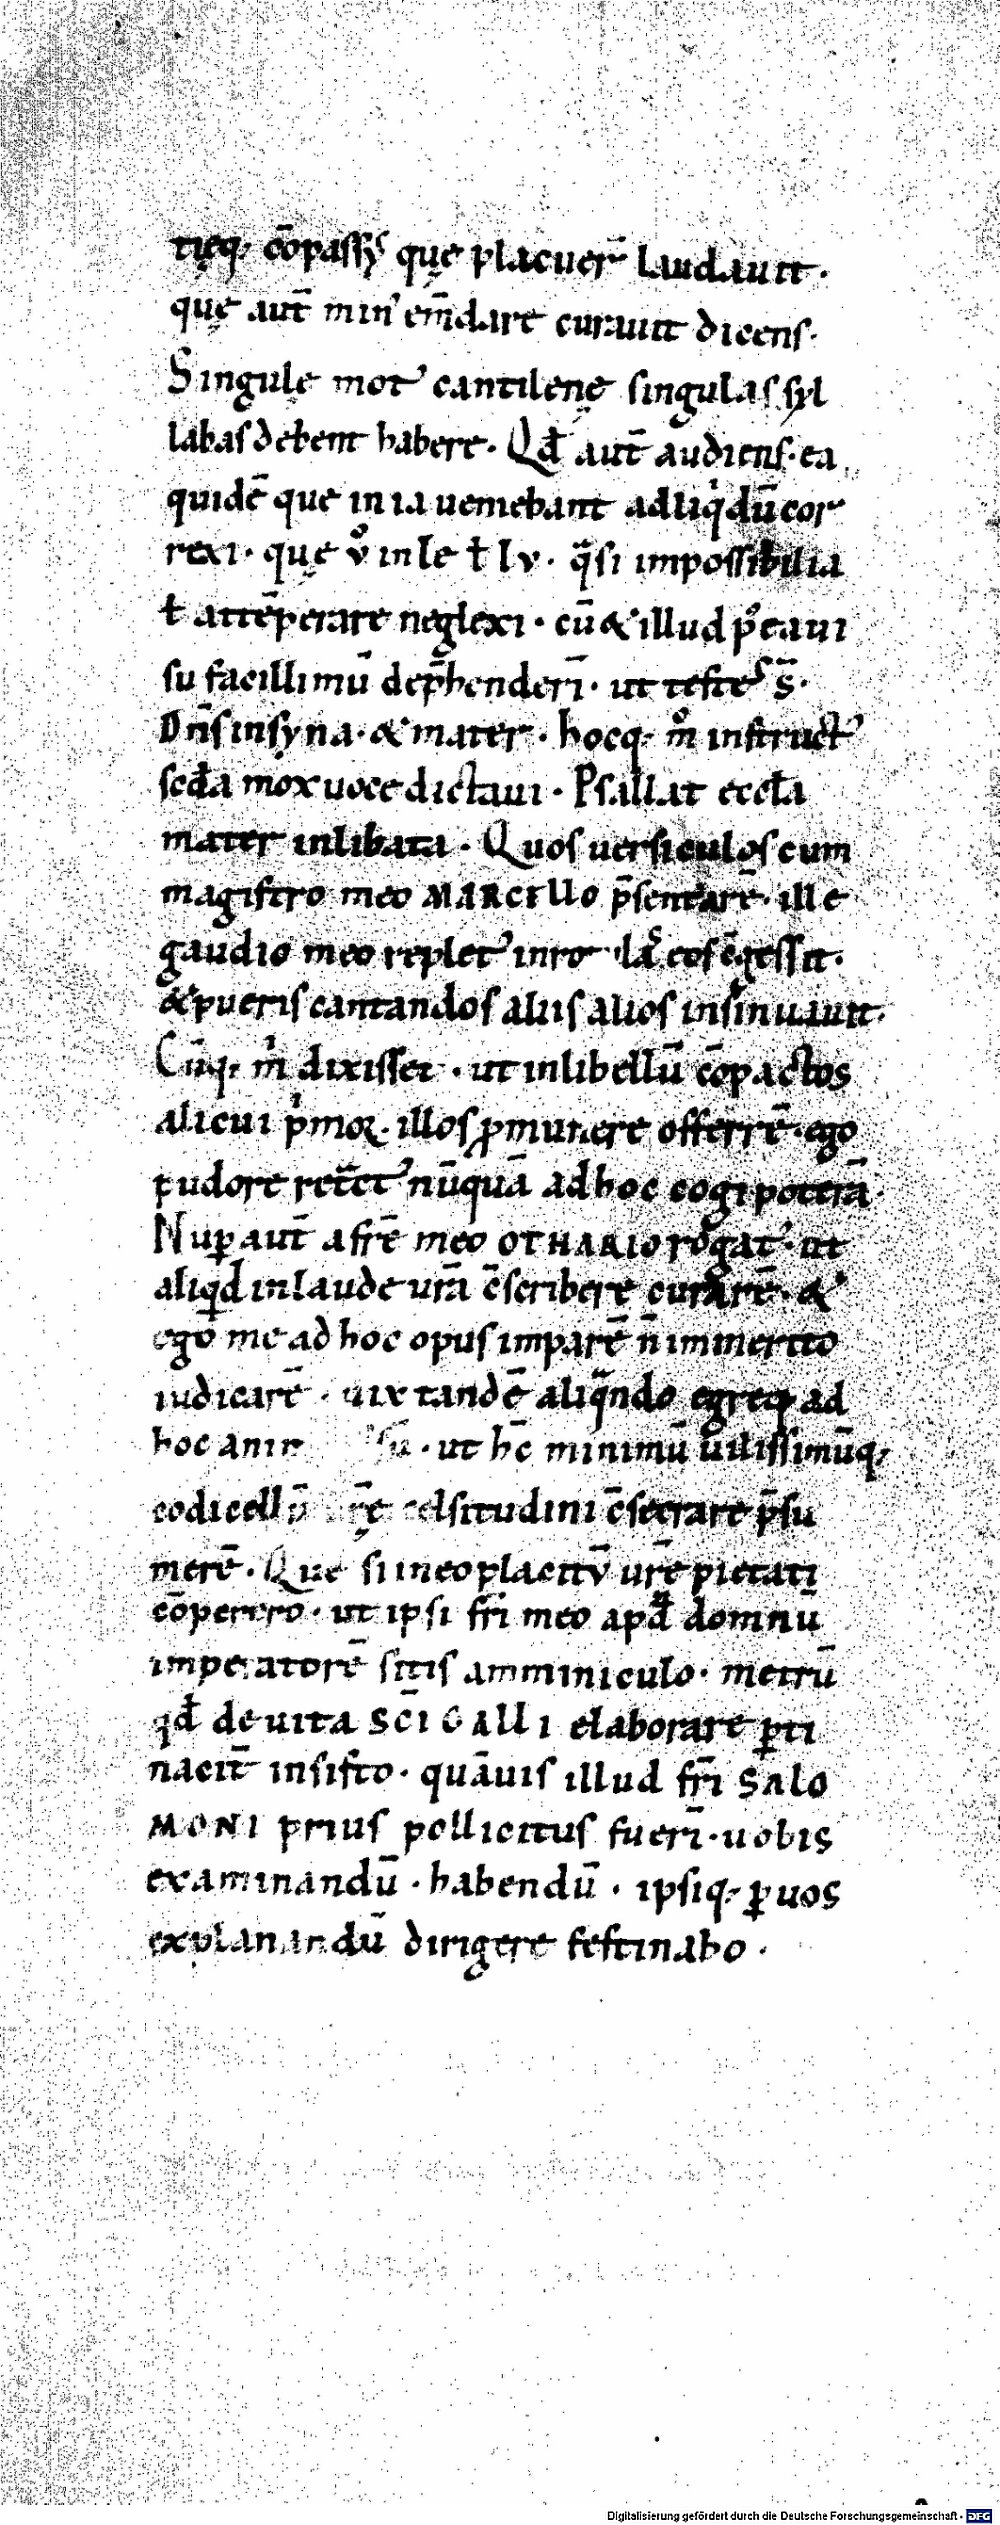 tięq; cōpassus quę placuer̄ laudauit·
quę aut̄ min᾽ em̄dare curauit dicens·
Singulę mot᾽ cantilenę singulas syl
labas debent habere· Qđ aut̄ audiens· ea
quidē que in ia ueniebant ad liqͥdū cor
rexi· quę ů in le ł lv· q̄si impossibilia
ł attēperare neglexi· cū & illud pͦea ui
su facillimū dep̄henderī· ut testes s̄·
Dn̄s in syna· & mater· hocq; mͦ instruct᾽
scđa mox uoce dictaui· Psallat eccła
mater inlibata· Quos uersiculos cum
magistro meo MARCELLO p̄sentarē· ille
gaudio meo replet᾽ in ro
& pueris cantandos aliis alios insinuauit·
Cūq; mͥ dixisset· ut in libellū cōpactos
alicui pͥmoꝝ illos ꝓ munere offerrē· ego
pudore ret̄ct᾽ nūquā ad hoc cogi poterā·
Nuꝑ aut̄ a fr̄e meo OTHARIO rogat᾽· ut
aliqͥd in laude ur̄a c̄scribere curarē· &
ego me ad hoc opus imparē n̄ immerito
iudicarē· uix tandē aliq̄ndo egreq; ad
hoc anim sū· ut hc̄ minimū uilissimūq;
codicellū ur̄ę celsitudini c̄secrare p̄su
merē· Que si in eo placitū ur̄ę pietati
cōperero· ut ipsi fr̄i meo apđ domnū
imperatorē sitis amminiculo· metrū
qđ de uita SC̄I GALLI elaborare ꝑti
nacit̄ insisto· quāuis illud fr̄i SALO
MONI prius pollicitus fuerī· uobis
examinandū· habendū· ipsiq; ꝑ uos
explanandū dirigere festinabo·
Digitalisierung gefördert durch die Deutsche Forschungsgemeinschaft - DFG